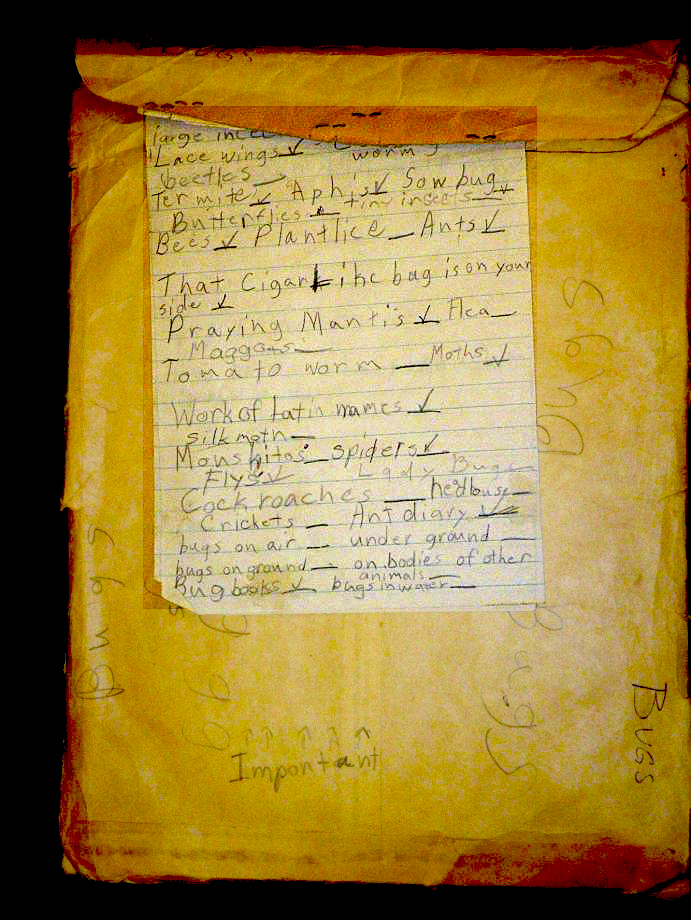 Bugs
large insec
Lace wings ✓ worms
beetles
Termite ✓ Aphis ✓ Sow bug ✓
Butterflies tiny insects
Bees ✓ Plantlice Ants ✓
That Cigar like bug is on your
side ✓
Praying Mantis ✓ Flea
Maggons
Tomato worm Moths ✓
Work of Latin names ✓
Silk moth
Mouskitos spiders ✓
Flys ✓ Lady Bugs
Cockroaches
Crickets Ant diary ✓
bugs on air under ground
bugs on ground on bodies of other
animals
Bug books ✓ bugs in water
Bugs
Bugs
Bugs
Bugs
Bugs
Important